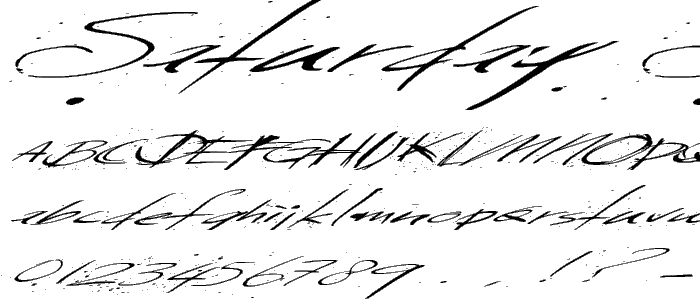 Saturday S
ABCDEFGHIJKLMNOPQ
abcdefghijklmnopqrstuvw
0123456789 . , ! ? _